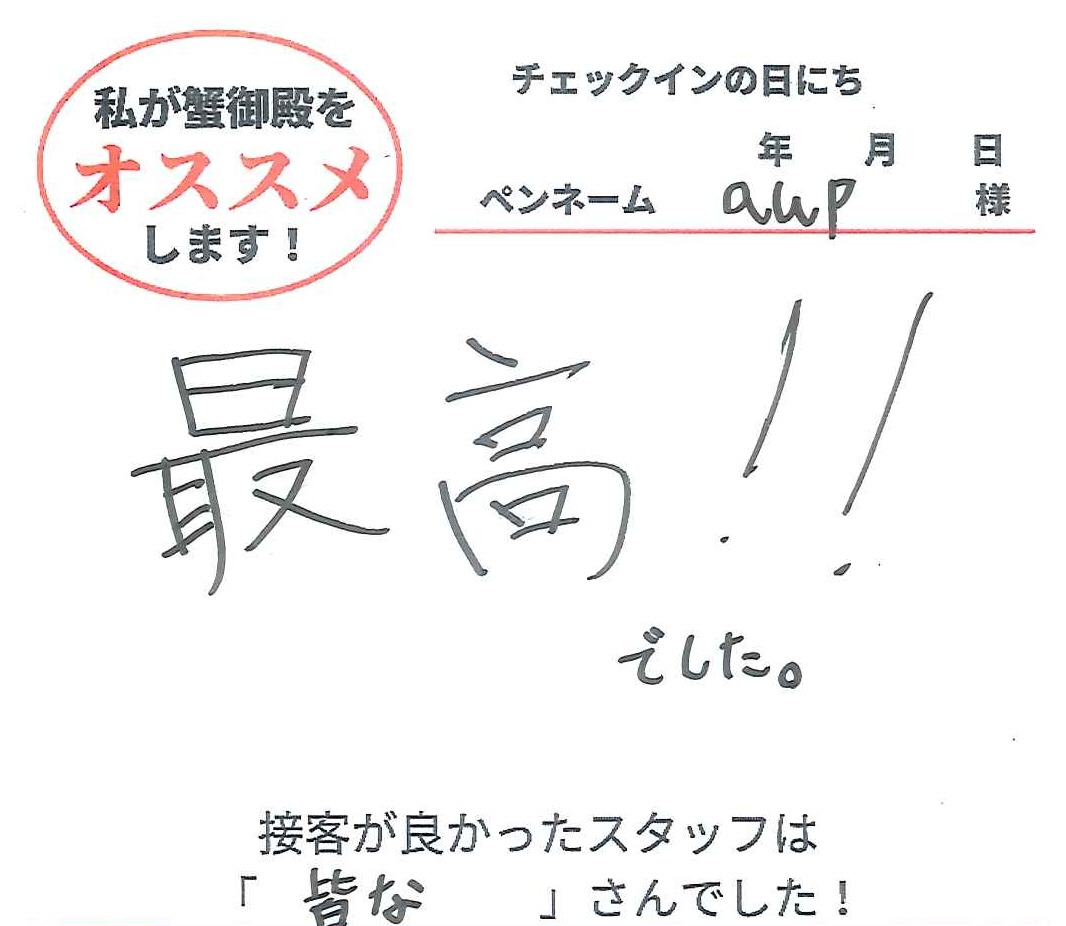 私が蟹御殿を
オススメ
します！
チェックインの日にち
年 月 日
ペンネーム aup 様
最高!!
でした。
接客が良かったスタッフは
「 皆な 」さんでした！